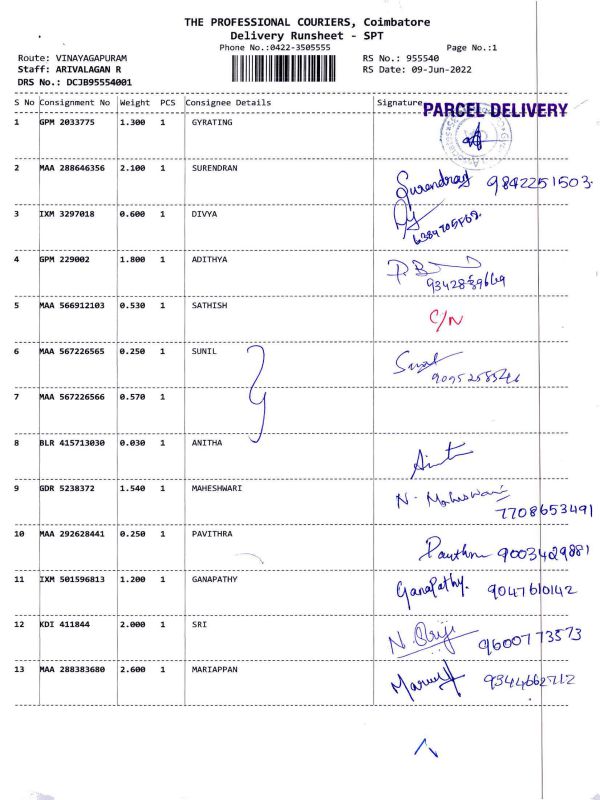 THE PROFESSIONAL COURIERS, Coimbatore
Delivery Runsheet - SPT
Phone No.:0422-3505555 Page No.:1
Route: VINAYAGAPURAM RS No.: 955540
Staff: ARIVALAGAN R RS Date: 09-Jun-2022
DRS No.: DCJB95554001
S No Consignment No Weight PCS Consignee Details Signature
PARCEL DELIVERY
1 GPM 2033775 1.300 1 GYRATING
2 MAA 288646356 2.100 1 SURENDRAN Surendran 9842251503
3 IXM 3297018 0.600 1 DIVYA
4 GPM 229002 1.800 1 ADITHYA
5 MAA 566912103 0.530 1 SATHISH C/N
6 MAA 567226565 0.250 1 SUNIL
7 MAA 567226566 0.570 1
8 BLR 415713030 0.030 1 ANITHA
9 GDR 5238372 1.540 1 MAHESHWARI N. Maheswari
7708653491
10 MAA 292628441 0.250 1 PAVITHRA 9003429881
11 IXM 501596813 1.200 1 GANAPATHY Ganapathy. 9047610142
12 KDI 411844 2.000 1 SRI 9600773573
13 MAA 288383680 2.600 1 MARIAPPAN 9344662712